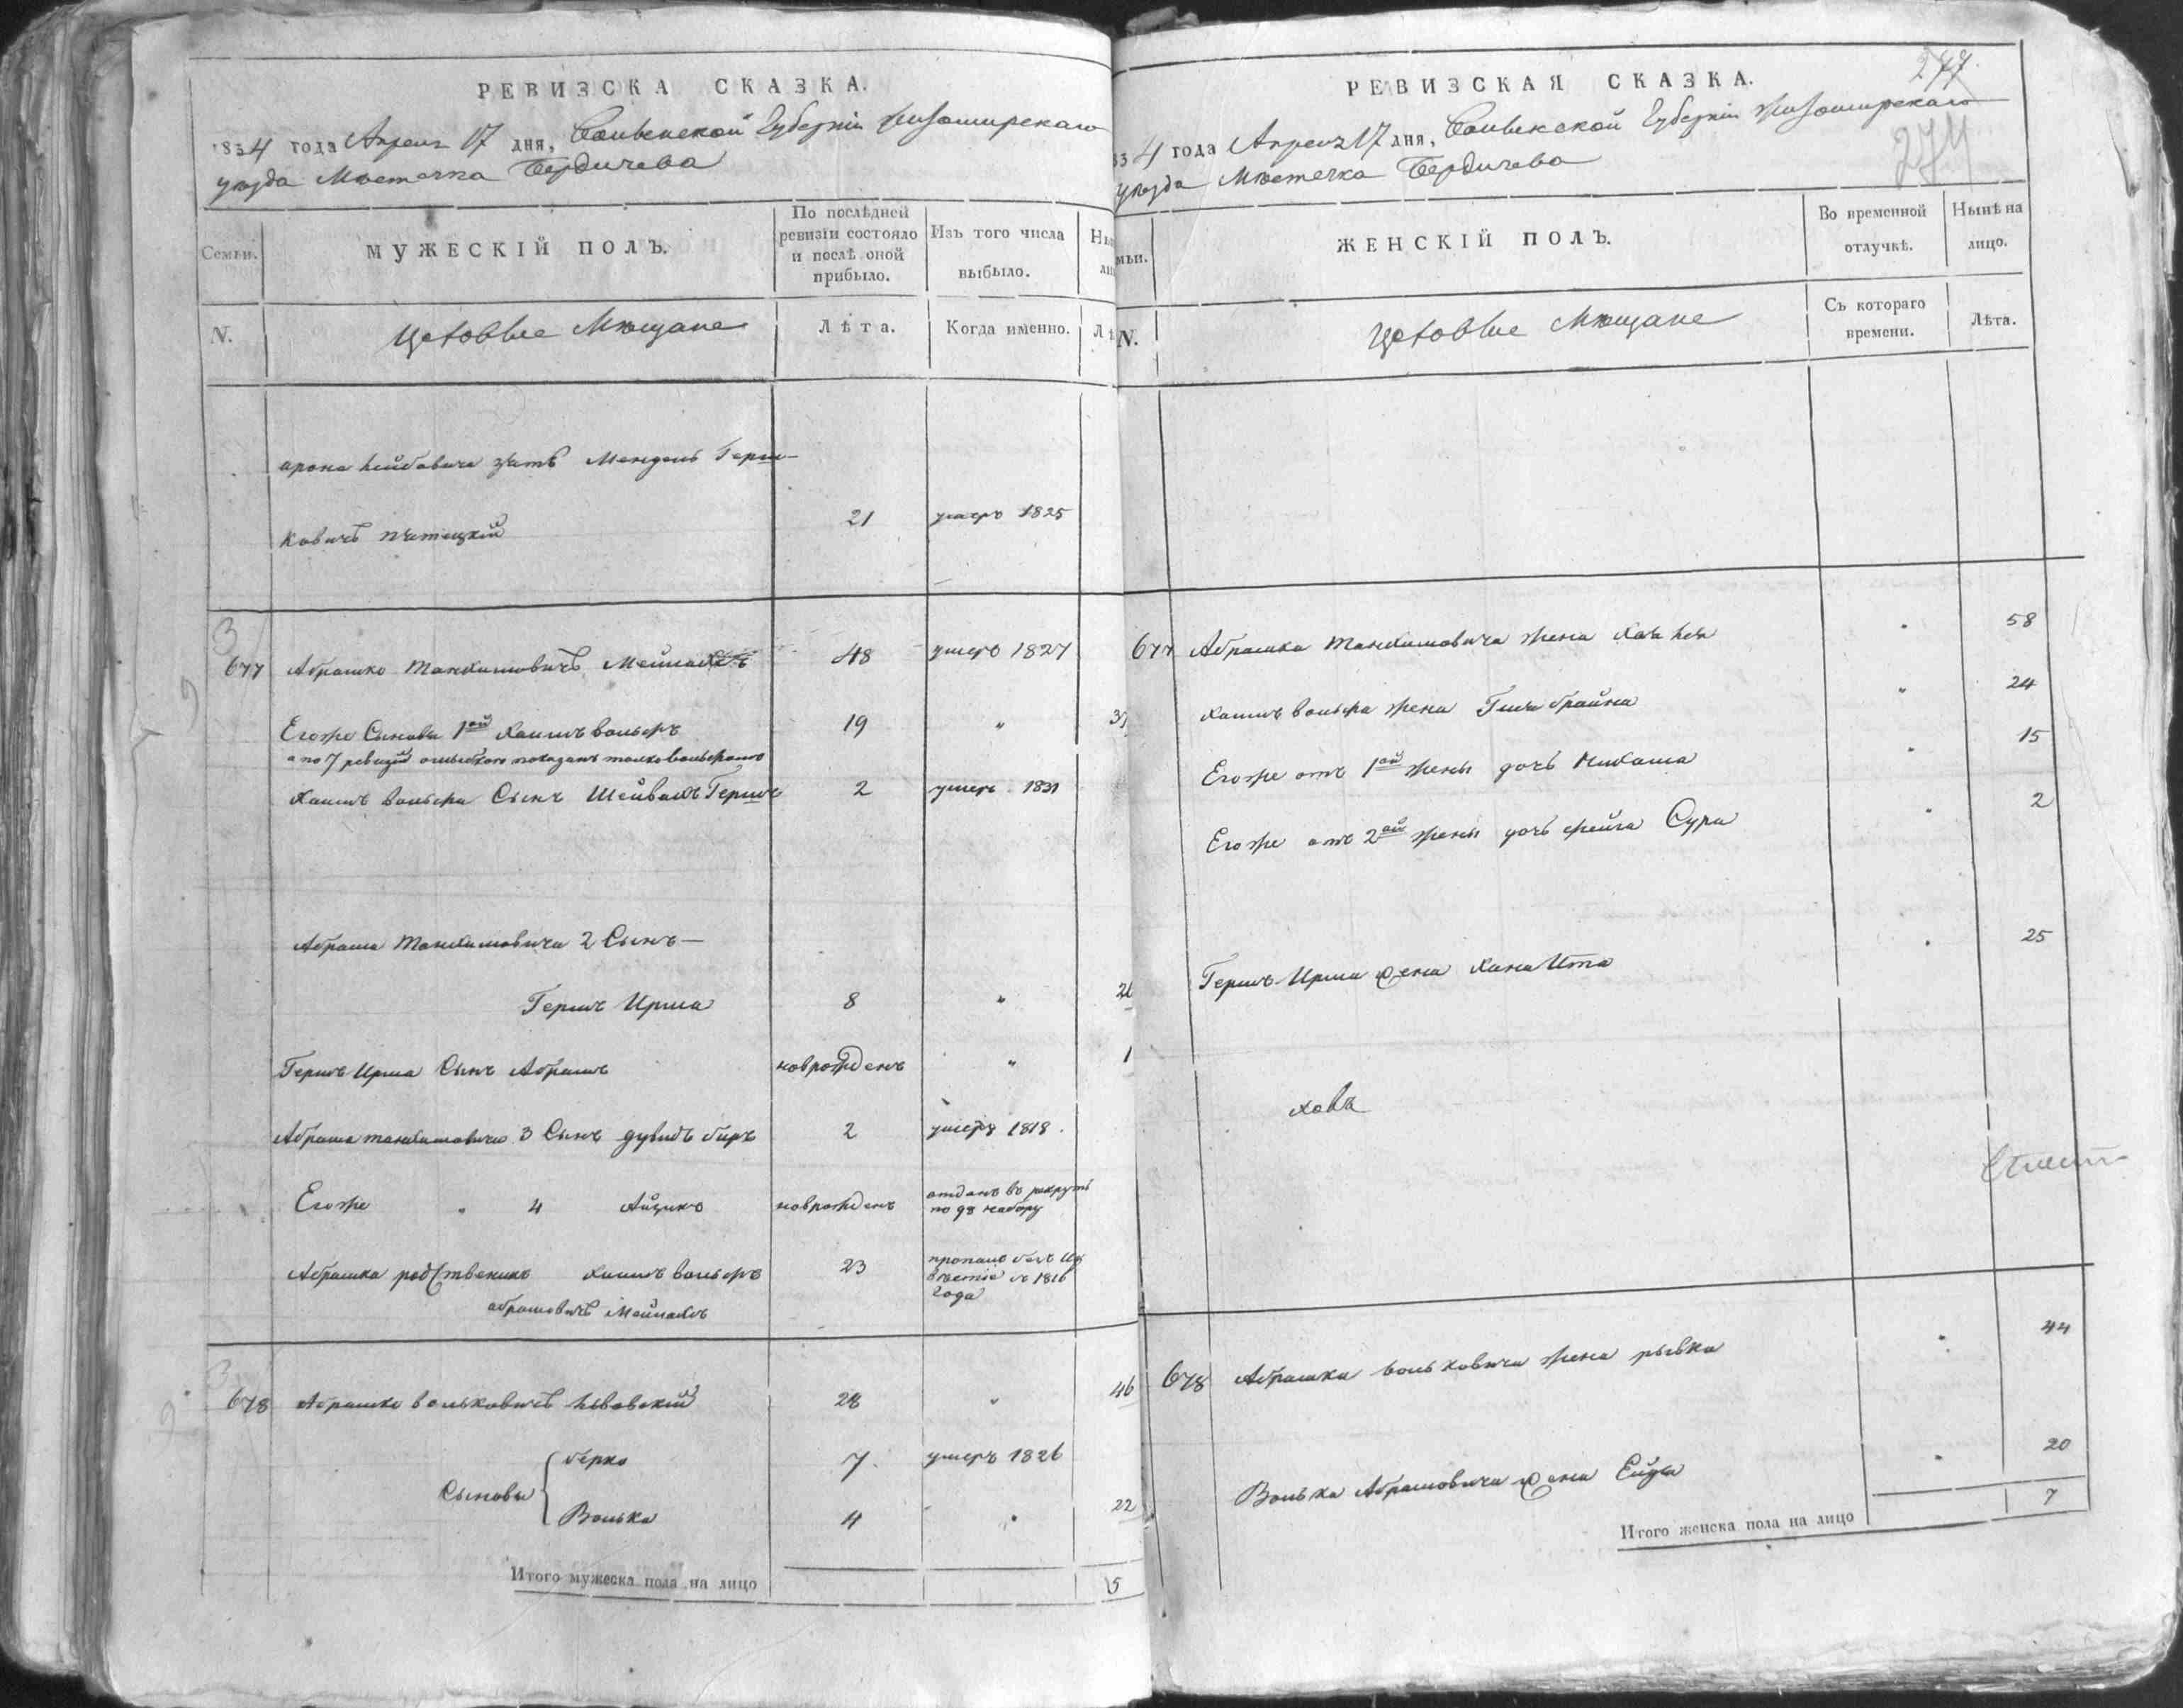 РЕВИЗСКА СКАЗКА.
1834 года Апреля 17 дня, Волынской Губерніи Житомирскаго
уезда Местечка Бердичева
Семьи.
МУЖЕСКІЙ ПОЛЪ.
По послѣдней ревизіи состояло и послѣ оной прибыло.
Изъ того числа выбыло.
N.
Цеховые Мещане
Лѣта.
Когда именно.
арона лейбовича зять Мендель Герш-
ковичъ
21
умеръ 1825
677 Абрашко Танхимовичъ
48
умеръ 1827
Егоже Сыновья 1ой Хаимъ вольфъ
19
"
а по 7 ревизіи показанъ только вольфомъ
Хаимъ вольфа Сынъ Гершъ
2
умеръ 1831
Абраша Танхимовича 2 Сынъ—
Гершъ Ирма
8
"
Гершъ Ирма Сынъ Абрамъ
новрожденъ
"
1
Абраша танхимовича 3 Сынъ дувидъ беръ
2
умеръ 1818
Егоже " 4 Айзикъ
новрожденъ
отданъ въ рекруты
по 98 набору
Абрашка родственикъ Хаимъ вольфъ
абрамовичъ
23
пропалъ безъ из
вестіе съ 1816
года
678 Абрашко вольковичъ львовскій
28
"
46
Сыновья
берко
7
умеръ 1826
Волько
4
22
Итого мужеска пола на лицо
5
РЕВИЗСКАЯ СКАЗКА.
277
274
1834 года Апреля 17 дня, Волынской Губерніи Житомирскаго
уезда Местечка Бердичева
ЖЕНСКІЙ ПОЛЪ.
Во временной отлучкѣ.
Нынѣ на лицо.
N.
Цеховые Мещане
Съ котораго времени.
Лѣта.
677 Абрашка Танхимовича жена Хая лея
58
Хаимъ вольфа жена брайна
24
Егоже отъ 1ой жены дочь
15
Егоже отъ 2ой жены дочь фейга Сура
2
Гершъ Ирма жена Хана Ита
25
678 Абрашка вольковича жена рывка
44
Волька Абрамовича жена
20
Итого женска пола на лицо
7